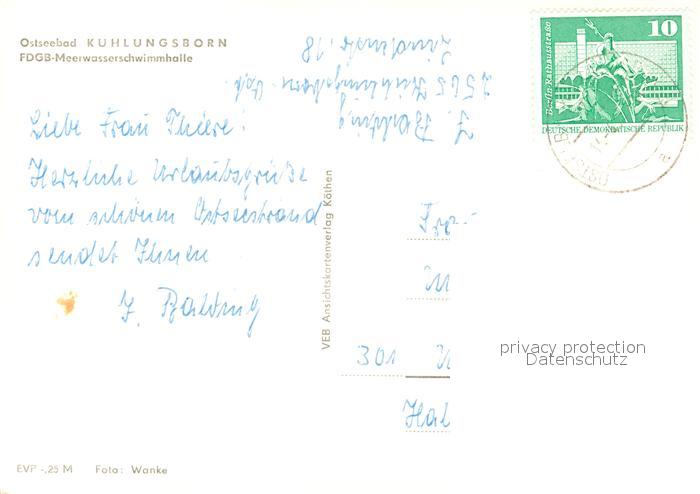 Ostseebad KUHLUNGSBORN
FDGB-Meerwasserschwimmhalle
Liebe Frau Thiere!
Herzliche Urlaubsgrüße
vom schönen Ostseestrand
sendet Ihnen
J. Balding
J. Balding
2565 Kühlungsborn Ost
18
VEB Ansichtskartenverlag Köthen
10
Berlin, Rathausstraße
DEUTSCHE DEMOKRATISCHE REPUBLIK
301
Hal
privacy protection
Datenschutz
EVP -,25 M Foto: Wanke